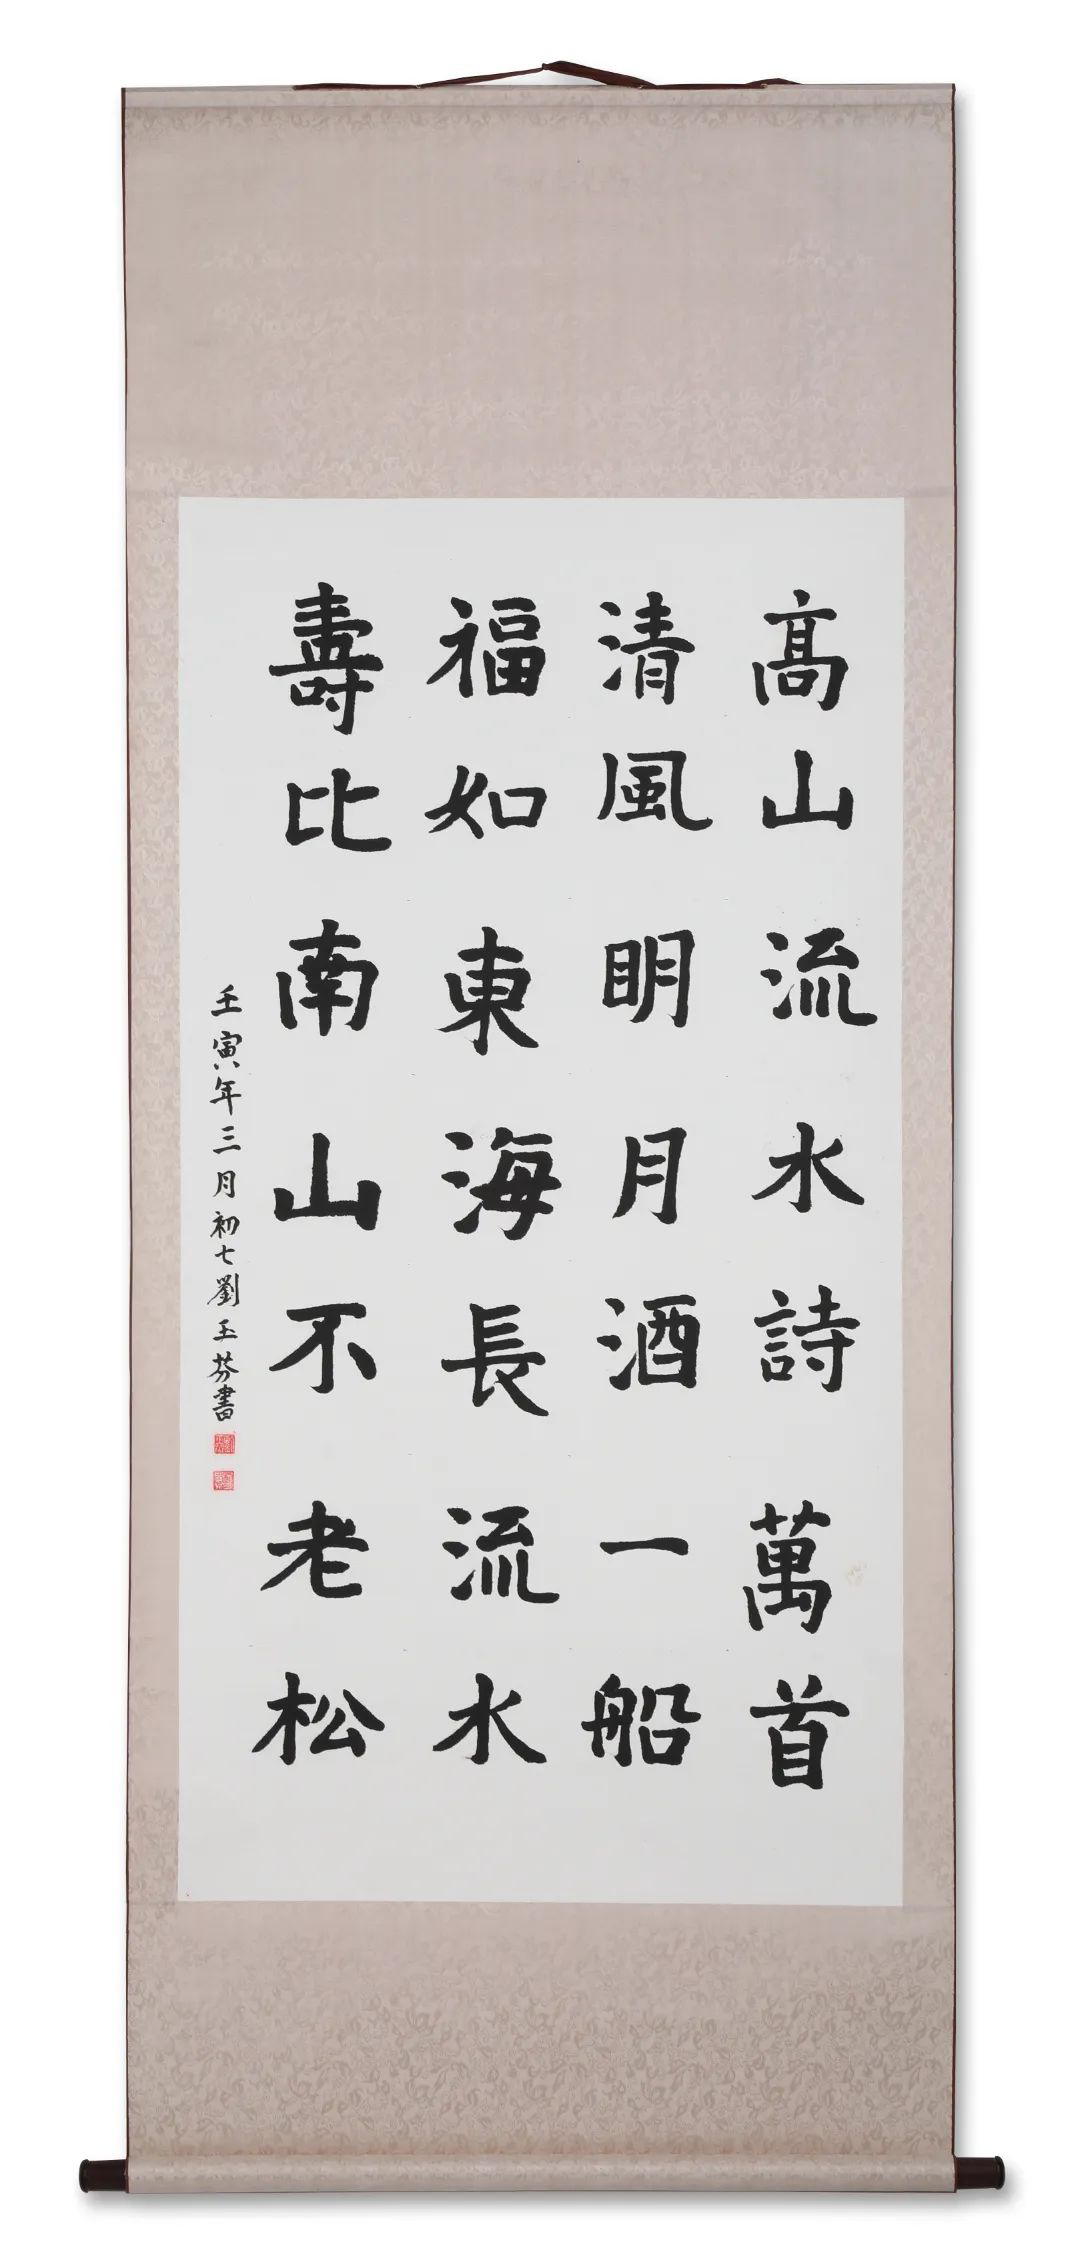 高山流水詩萬首
清風明月酒一船
福如東海長流水
壽比南山不老松
壬寅年三月初七劉玉芬書